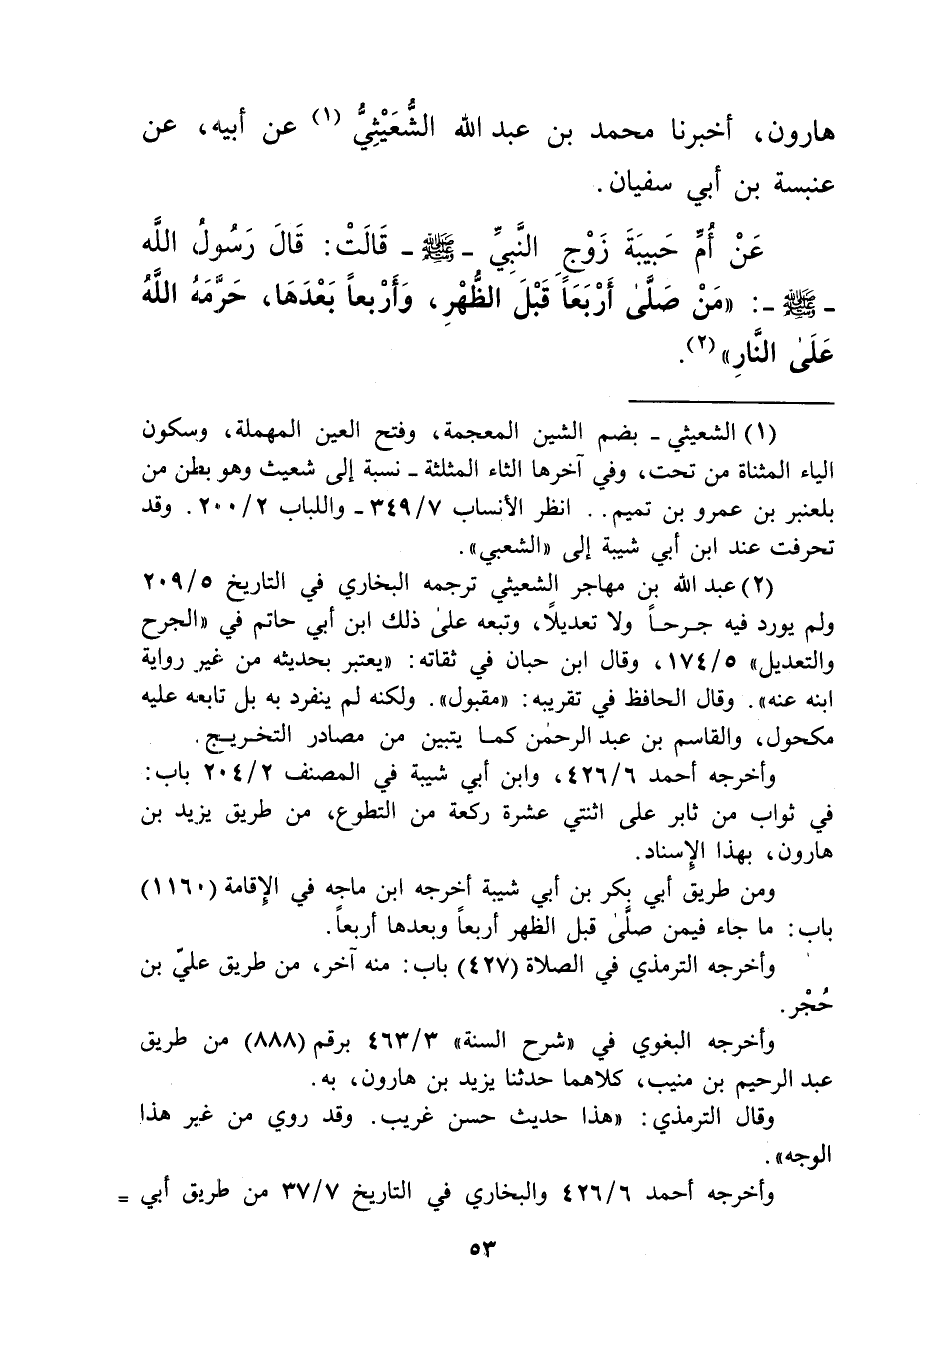 هارون، أخبرنا محمد بن عبد الله الشُّعَيْثِيُّ (١) عن أبيه، عن
عنبسة بن أبي سفيان.
عَنْ أُمِّ حَبِيبَةَ زَوْجِ النَّبِيِّ ـ ﷺ ـ قَالَتْ: قَالَ رَسُولُ اللَّه
ـ ﷺ ـ: «مَنْ صَلَّىٰ أَرْبَعَاً قَبْلَ الظُّهْرِ، وَأَرْبعاً بَعْدَهَا، حَرَّمَهُ اللَّهُ
عَلَىٰ النَّارِ»(٢).
(١) الشعيثي ـ بضم الشين المعجمة، وفتح العين المهملة، وسكون
الياء المثناة من تحت، وفي آخرها الثاء المثلثة ـ نسبة إلى شعيث وهو بطن من
بلعنبر بن عمرو بن تميم.. انظر الأنساب ٣٤٩/٧ ـ واللباب ٢٠٠/٢. وقد
تحرفت عند ابن أبي شيبة إلى «الشعبي».
(٢) عبد الله بن مهاجر الشعيثي ترجمه البخاري في التاريخ ٢٠٩/٥
ولم يورد فيه جرحاً ولا تعديلاً، وتبعه علىٰ ذلك ابن أبي حاتم في «الجرح
والتعديل» ١٧٤/٥، وقال ابن حبان في ثقاته: «يعتبر بحديثه من غير رواية
ابنه عنه». وقال الحافظ في تقريبه: «مقبول». ولكنه لم ينفرد به بل تابعه عليه
مكحول، والقاسم بن عبد الرحمٰن كما يتبين من مصادر التخريج.
وأخرجه أحمد ٤٢٦/٦، وابن أبي شيبة في المصنف ٢٠٤/٢ باب:
في ثواب من ثابر على اثنتي عشرة ركعة من التطوع، من طريق يزيد بن
هارون، بهذا الإسناد.
ومن طريق أبي بكر بن أبي شيبة أخرجه ابن ماجه في الإقامة (١١٦٠)
باب: ما جاء فيمن صلَّىٰ قبل الظهر أربعاً وبعدها أربعاً.
وأخرجه الترمذي في الصلاة (٤٢٧) باب: منه آخر، من طريق عليّ بن
حُجْر.
وأخرجه البغوي في «شرح السنة» ٤٦٣/٣ برقم (٨٨٨) من طريق
عبد الرحيم بن منيب، كلاهما حدثنا يزيد بن هارون، به.
وقال الترمذي: «هذا حديث حسن غريب. وقد روي من غير هذا
الوجه».
وأخرجه أحمد ٤٢٦/٦ والبخاري في التاريخ ٣٧/٧ من طريق أبي =
٥٣